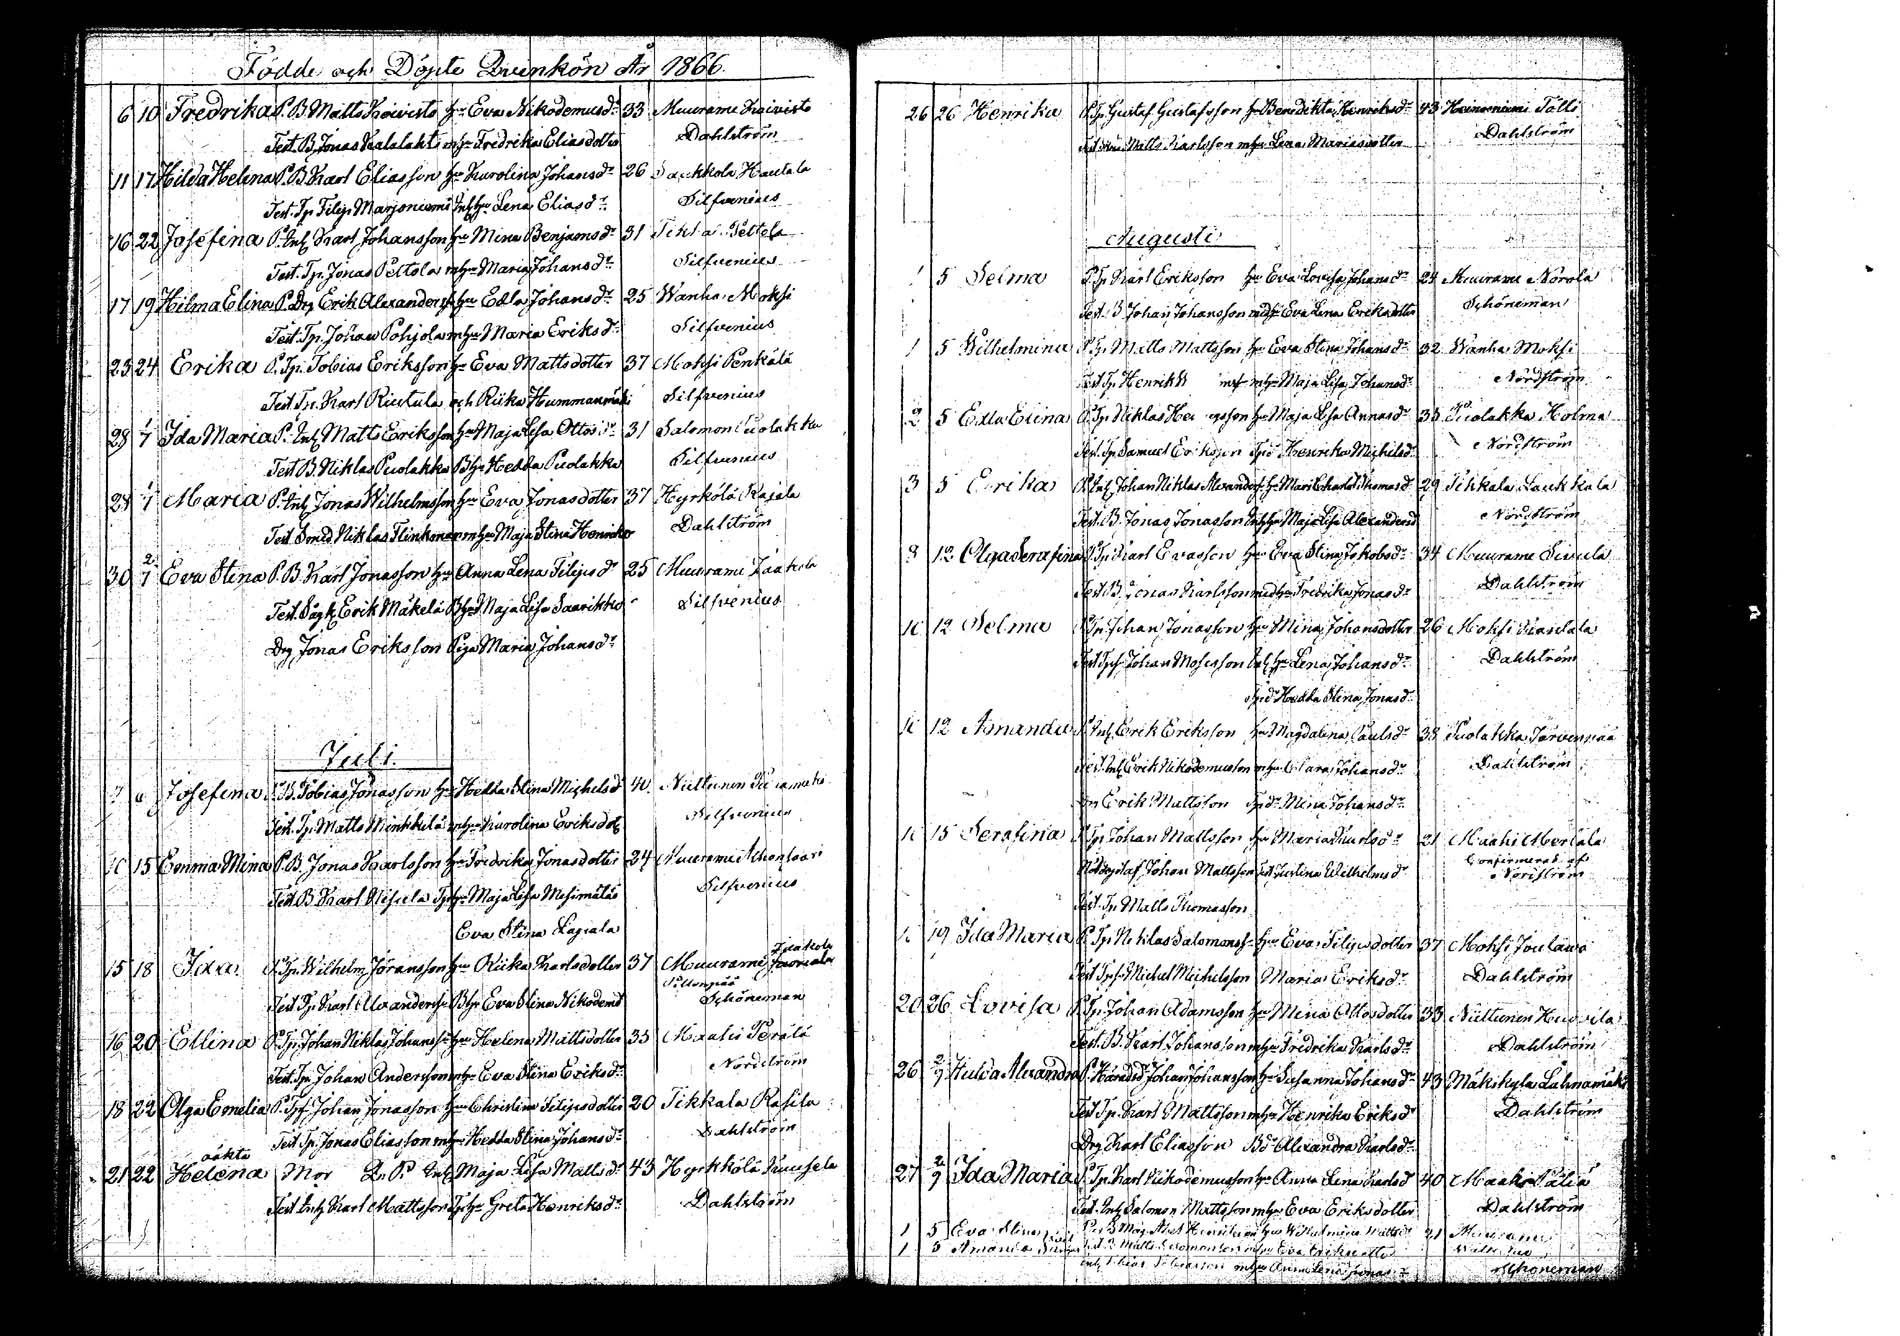 Födde och Döpte Qvinkön År 1866.
6 10 Fredrika P. B. Matts Koivisto hu Eva Nikodemusdr 33 Muurame Koivisto
Test. B. Jonas Kalalahti m hu Fredrika Eliasdotter Dahlström
11 17 Hilda Helena P. B. Karl Eliasson hu Karolina Johansdr 26 Saukkola Hautala
Test. Tp. Filip Marjoniemi Inh hu Lena Eliasdr Silfvenius
16 22 Josefina P. Inh Karl Johansson hu Mina Benjamsdr 31 Tikkala Pettola
Test. Tp. Jonas Pettola m hu Maria Johansdr Silfvenius
17 19 Hilma Elina P. Drg Erik Alexanderss hu Edla Johansdr 25 Wanha Moksi
Test. Tp. Johan Pohjola m hu Maria Eriksdr Silfvenius
23 24 Erika P. Tp. Tobias Eriksson hu Eva Mattsdotter 37 Moksi Penkälä
Test. Tp. Karl Riutula och Riika Hummanmäki Silfvenius
28 1/7 Ida Maria P. Inh Matts Eriksson hu Maja Lisa Ottosdr 31 Salomon Puolakka
Test. B. Niklas Puolakka B hu Hedda Puolakka Silfvenius
28 1/7 Maria P. Inh Jonas Wilhelmsson hu Eva Jonasdotter 37 Hyrkölä Rajala
Test. Smed. Niklas Flinkman m hu Maja Stina Henriks Dahlström
30 2/7 Eva Stina P. B. Karl Jonasson hu Anna Lena Filipsdr 25 Muurame Jaakola
Test. Sågk Erik Mäkelä B hu Maja Lisa Saarikko Silfvenius
Drg Jonas Eriksson Piga Maria Johansdr
Juli.
Josefina P. B. Tobias Jonasson hu Hedda Stina Michelsd 40 Niittunen
Test. Tp. Matts Minkkilä m hu Karolina Eriksdot Silfvenius
10 15 Emma Mina P. B. Jonas Karlsson hu Fredrika Jonasdotter 24 Muurame Ahonsaari
Test. B. Karl Nisula Tp hu Maja Lisa Silfvenius
Eva Stina Lapiala
15 18 Ida P. Tp. Wilhelm Joransson hu Riika Karlsdotter 37 Muurame Jaakola
Test. Tp. Karl Alexanderss B hu Eva Stina Nikodemd Schöneman
16 20 Ellina P. Tp. Johan Niklas Johanss hu Helena Mattsdotter 33 Maatis Perälä
Test. Tp. Johan Andersson m hu Eva Stina Eriksdr Nordström
18 22 Olga Emelia P. Tpf Johan Jonasson hu Christina Filipsdotter 20 Tikkala Rasila
Test. Tp. Jonas Eliasson m hu Hedda Stina Johansdr Dahlström
oäkta
21 22 Helena Mor Q. P. Inh Maja Lisa Mattsdr 43 Hyrkkölä Kuusela
Test. Inh Karl Mattsson Tp hu Greta Henriksdr Dahlström
26 26 Henrika P. Tp. Gustaf Gustafsson hu Benedikta Henriksdr 43 Tölli
Test. Matts Karlsson m hu Lena Mariasdotter Dahlström
Augusti
1 5 Selma P. Tp. Karl Eriksson hu Eva Lovisa Johansdr 24 Muurame Norola
Test. B. Johan Johansson Eva Lena Eriksdotter Schöneman
1 5 Wilhelmina P. Tp. Matts Mattsson hu Eva Stina Johansdr 32 Wanha Moksi
Test. Tp. Henrik m hu Maja Lisa Johansdr Nordström
2 5 Edla Elina P. Tp. Niklas hu Maja Lisa Annasdr 33 Puolakka Holma
Test. Tp. Samuel Eriksson Henrika Michelsd Nordström
3 5 Erika P. Inh Johan Niklas Alexanderss hu Thomasd 29 Tikkala Laukkala
Test. B. Jonas Jonasson Inh hu Maja Lisa Alexandersd Nordström
8 12 Olga Serafina P. Tp. Karl Evasson hu Eva Stina Jakobsdr 34 Muurame Sivula
Test. B. Jonas Karlsson med hu Fredrika Jonasdr Dahlström
10 12 Selma P. Tp. Johan Jonasson hu Mina Johansdotter 26 Moksi Kantala
Test. Tpf Johan Mosesson Inh hu Lena Johansdr Dahlström
Hedda Stina Jonasd
10 12 Amanda P. Inh Erik Eriksson hu Magdalena Paulsdr 38 Puolakka Järvenpää
Test. Inh Erik Nikodemusson m hu Clara Johansdr Dahlström
Erik Mattsson Mina Johansdr
10 15 Serafina P. Tp. Johan Mattsson hu Maria Karlsdr 21 Maahi Mertala
Nöddop af Johan Mattsson Justina Wilhelmsdr Confirmerad af
Nordström
Test. Tp. Matts Thomasson
19 Ida Maria P. Tp. Niklas Salomonss hu Eva Filipsdotter 37 Moksi Joulawa
Test. Tpf Michel Michelsson Maria Eriksdr Dahlström
20 26 Lovisa P. Tp. Johan Adamsson hu Mina Ottosdotter 33 Niittunen Huovila
Test. B. Karl Johansson m hu Fredrika Karlsdr Dahlström
26 2/9 Hulda Alexandra P. Johan Johansson hu Susanna Johansdr 43 Mäkikylä Lahnamäki
Test. Tp. Karl Mattsson m hu Henrika Eriksdr Dahlström
Drg Karl Eliasson Bd Alexandra Karlsdr
27 2/9 Ida Maria P. Tp. Karl Nikodemusson hu Anna Lena Karlsd 40 Maahi
Test. Inh Salomon Mattsson m hu Eva Eriksdotter Dahlström
1 5 Eva Stina hu Wilhelmina Mattsdr 21 Muurame
1 5 Amanda
m hu Anna Lena Jonasdr Schöneman